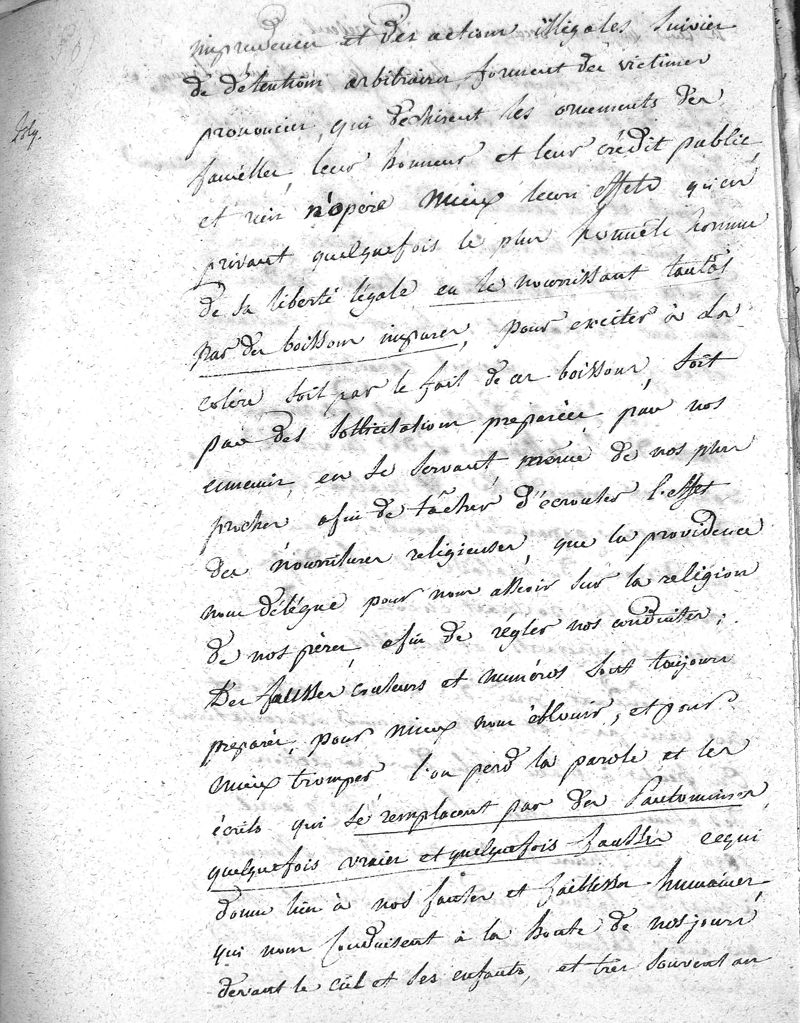 imprudences et des actions illégales suivies
de détentions arbitraires, forment des victimes
prononcées, qui déchirent les ornements des
familles, leur honneur et leur crédit public,
et rien n'opère mieux leurs effets qu'en
privant quelquefois le plus honnête homme
de sa liberté légale en le nourrissant tantôt
par des boissons impures, pour exciter à la
colère soit par le fait de ces boissons, soit
par des sollicitations preparées par nos
ennemis, en se servant, même de nos plus
proches afin de tâcher d'écrouler l'effet
des nourritures religieuses, que la providence
nous délégue pour nous asseoir sur la religion
de nos pères afin de régler nos conduites;
Des fausses couleurs et numéros sont toujours
preparés, pour mieux nous éblouir, et pour
mieux tromper l'on perd la parole et les
écrits qui se remplacent par des Pantomines,
quelquefois vraies et quelquefois fausses ce qui
donne lieu à nos fautes et faiblesses humaines,
qui nous conduisent à la honte de nos jours,
devant le ciel et ses enfants, et très souvent au